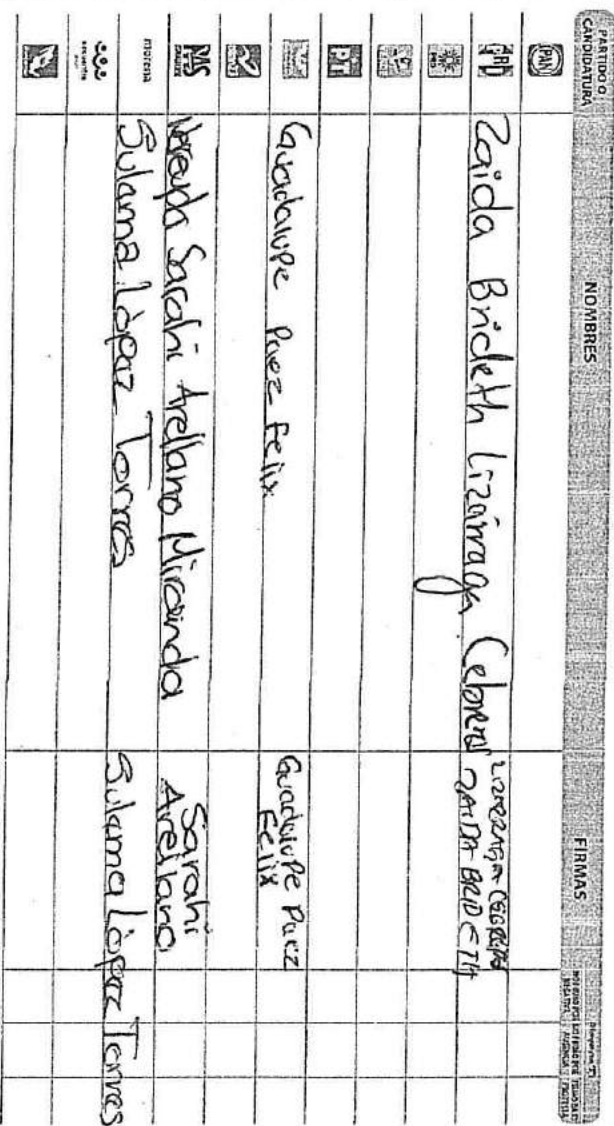 PARTIDO O CANDIDATURA
NOMBRES
FIRMAS
PAN
PRI
Zaida Brideth Lizárraga Cebreros
ZAIDA BRIDETH
PRD
PT
Guadalupe Paez Felix
Guadalupe Paez
Felix
PAS
Sarahi Arellano Miranda
Sarahi
Arellano
morena
Sulama López Torres
Sulama López Torres
encuentro